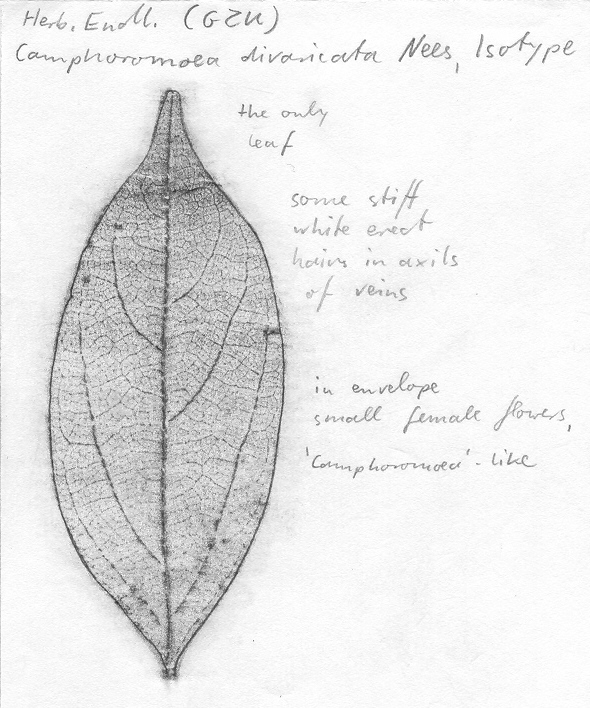 Herb. Endl. (GZU)
Camphoromoea divaricata Nees, Isotype
the only
leaf
some stiff
white erect
hairs in axils
of veins
in envelope
small female flowers,
'Camphoromoea'-like